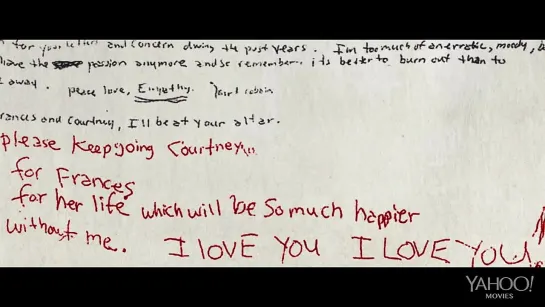 for your letters and concern during the past years. I'm too much of an erratic, moody,
have the passion anymore and so remember. its better to burn out than to
away. peace love, Empathy. Kurt Cobain
Frances and Courtney, I'll be at your altar.
please Keep going Courtney
for Frances
for her life which will be so much happier
without me. I LOVE YOU I LOVE YOU!
YAHOO!
MOVIES